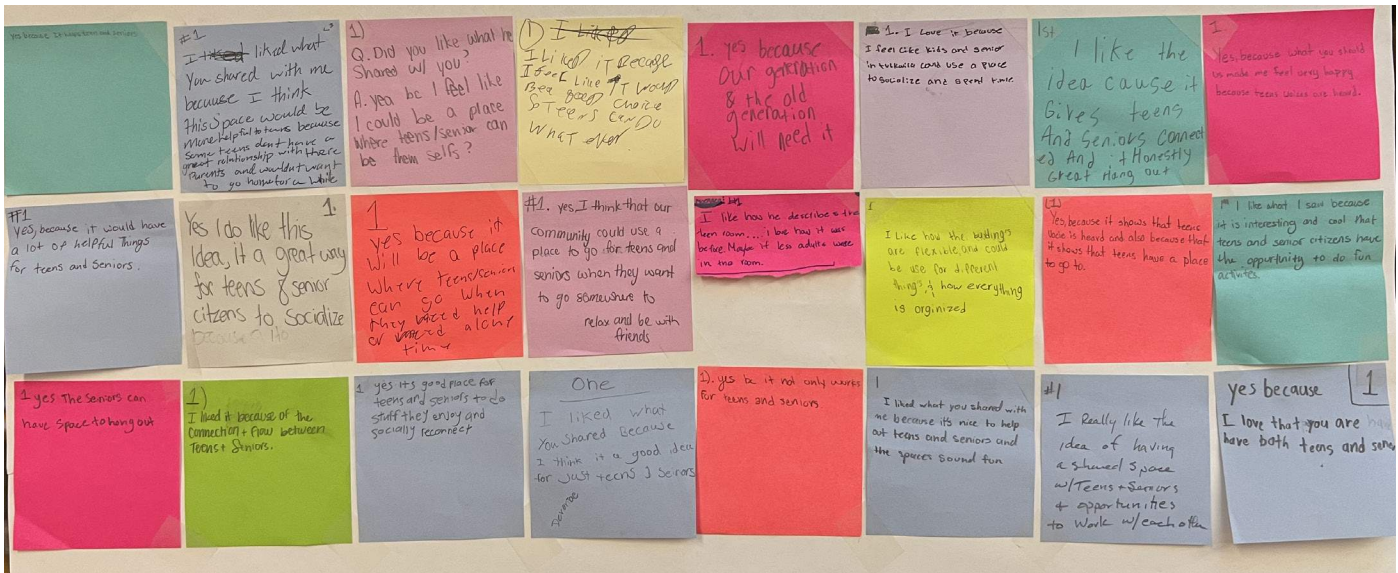 yes because it have teen and seniors
#1
I liked what
you shared with me
because I think
this space would be
more helpful to teens because
some teens dont have a
great relationship with there
parents and wouldnt want
to go home for a while
1)
Q. Did you like what he
shared w/ you?
A. yea bc I feel like
I could be a place
where teens/senior can
be them selfs?
1) I liked
I Liked iT Because
I feel Like iT would
Bea good choice
so Teens can DO
What ever
1. yes because
our generation
& the old
generation
will need it
#1. I love it because
I feel like kids and senior
in tukwila could use a place
to socialize and spend time
1st
I like the
idea cause it
Gives teens
And Seniors connect
ed And it Honestly
Great Hang out
1.
Yes, because what you should
us made me feel very happy
because teens voices are heard.
#1
yes, because it would have
a lot of helpful things
for teens and seniors.
1.
Yes I do like this
Idea, it a great way
for teens & senior
citzens to socialize
1
yes because it
will be a place
where teens/seniors
can go when
they need help
or need alone
time
#1. yes, I think that our
community could use a
place to go for teens and
seniors when they want
to go somewhere to
relax and be with
friends
I like how he describes the
teen room.... I love how it was
before Maybe if less adults were
in the room.
1
I Like how the buildings
are flexible, and could
be use for different
things, & how everything
is orginized
(1)
Yes, because it shows that teens
voice is heard and also because that
it shows that teens have a place
to go to.
1 I like what I saw because
it is interesting and cool that
teens and senior citizens have
the opportunity to do fun
activites.
1 yes The Seniors can
have space to hang out
1)
I liked it because of the
Connection + flow between
Teens + Seniors.
1 yes its good place for
teens and seniors to do
stuff they enjoy and
socially reconnect
One
I liked what
You shared Because
I think it a good idea
for Just teens & Seirors
1). yes bc it not only works
for teens and seniors.
1
I liked what you shared with
me because it's nice to help
out teens and seniors and
the spaces sound fun
#1
I Really like The
idea of having
a shared space
w/Teens + Seniors
+ opportunities
to work w/each other
1
yes because
I love that you are
have both teens and